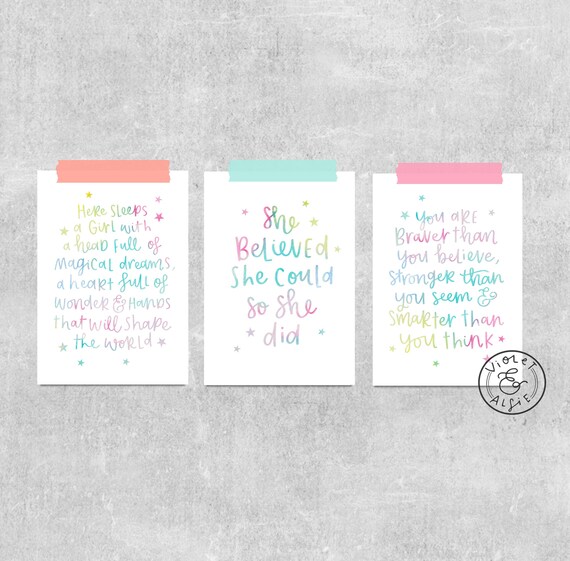 Here Sleeps
a Girl with
a head full of
magical dreams,
a heart full of
wonder & Hands
that will shape
the world
She
Believed
She Could
so she
did
You are
Braver than
you believe,
stronger than
you seem &
smarter than
you think
Violet
&
Alfie